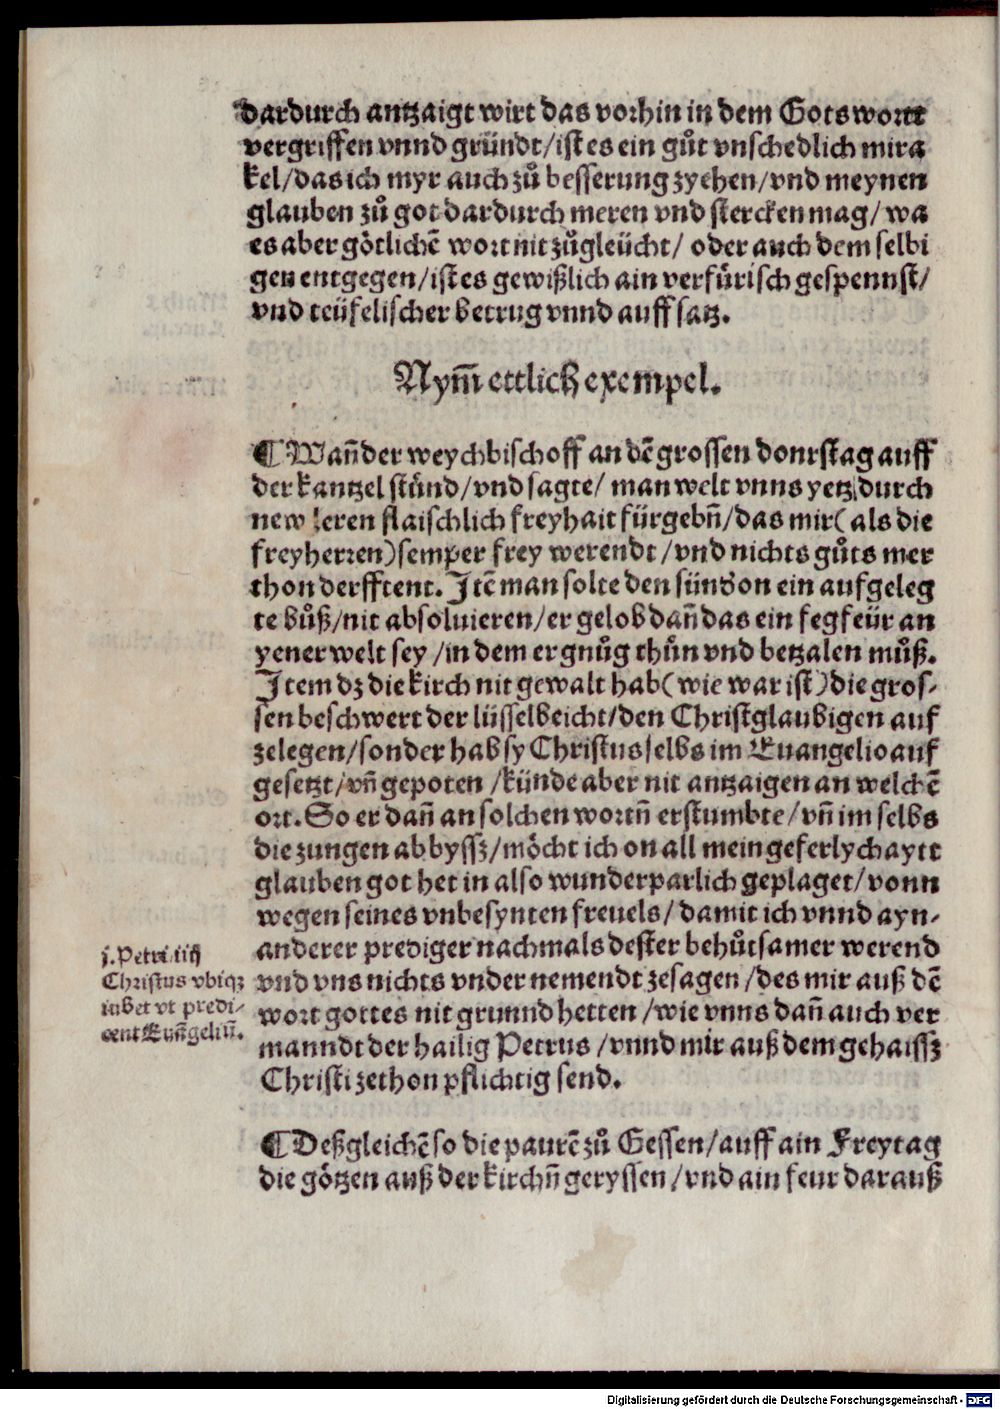 dardurch antzaigt wirt das vorhin in dem Gotswortt
vergriffen vnnd gründt/ist es ein gůt vnschedlich mira
kel/das ich myr auch zů besserung zyehen/vnd meynen
glauben zů got dardurch meren vnd stercken mag/wa
es aber götlichē wort nit zůgleücht/ oder auch dem selbi
gen entgegen/ist es gewißlich ain verfürisch gespennst/
vnd teüfelischer betrug vnnd auffsatz.
Nym̄ ettlich exempel.
¶ Wañ der weychbischoff an dē grossen donrstag auff
der kantzel stůnd/vnd sagte/ man welt vnns yetz durch
new leren flaischlich freyhait fürgebñ/das mir( als die
freyherren)semper frey werendt/vnd nichts gůts mer
thon derfftent. Itē man solte den sündon ein aufgeleg
te bůß/nit absoluieren/er gelob dañ das ein fegfeür an
yener welt sey/in dem er gnůg thůn vnd betzalen můß.
Item dz die kirch nit gewalt hab(wie war ist)die gros-
sen beschwert der lüsselbeicht/den Christglaubigen auf
zelegen/sonder hab sy Christus selbs im Euangelio auf
gesetzt/vñ gepoten/künde aber nit antzaigen an welchē
ort. So er dañ an solchen wortñ erstumbte/vñ im selbs
die zungen abbyssz/möcht ich on all mein geferlychaytt
glauben got het in also wunderparlich geplaget/vonn
wegen seines vnbesynten freuels/damit ich vnnd ayn-
anderer prediger nachmals dester behůtsamer werend
vnd vns nichts vnder nemendt zesagen/des mir auß dē
wort gottes nit grunnd hetten/wie vnns dañ auch ver
manndt der hailig Petrus/vnnd mir auß dem gehaissz
Christi zethon pflichtig send.
j. Petri iiij
Christus vbiqz
iubet vt predi-
cent Euñgeliū.
¶ Deßgleichē so die paurē zů Gessen/auff ain Freytag
die götzen auß der kirchñ geryssen/vnd ain feur darauß
Digitalisierung gefördert durch die Deutsche Forschungsgemeinschaft - DFG